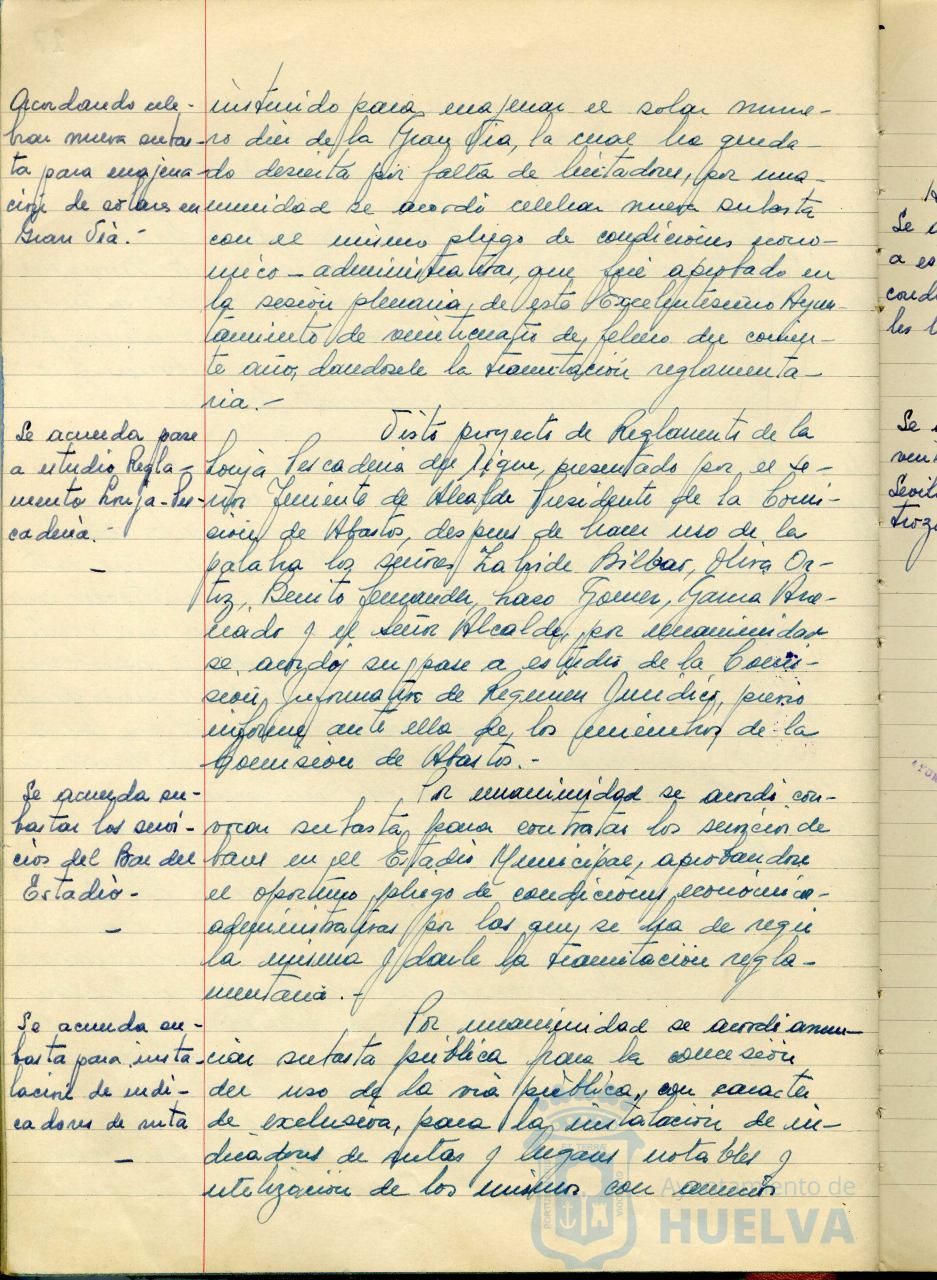 Acordando cele-
brar nueva subas-
ta para enajena
ción de solares en
Gran Vía.-
instruido para enajenar el solar núme-
ro diez de la Gran Vía, la cual ha queda-
do desierta por falta de licitadores, por una-
nimidad se acordó celebrar nueva subasta
con el mismo pliego de condiciones econó-
mico-administrativas, que fué aprobado en
la sesión plenaria, de este Excelentísimo Ayun-
tamiento de veinticuatro de febrero del corrien-
te año, dandosele la tramitación reglamenta-
ria.-
Se acuerda pase
a estudio Regla-
mento Lonja-Pes-
cadería.-
Visto proyecto de Reglamento de la
Lonja Pescadería del Dique, presentado por el Se-
ñor Teniente de Alcalde Presidente de la Comi-
sión de Abastos, despues de hacer uso de la
palabra los señores Bilbao, Oliva Or-
tiz, Benito Fernandez, Laso Gomez, Garcia
y el Señor Alcalde, por unanimidad
se acordó su pase a estudio de la Comi-
sión Informativa de Regimen Jurídico, previo
informe ante ella de los miembros de la
Comisión de Abastos.-
Se acuerda su-
bastar los servi-
cios del Bar del
Estadio-
Por unanimidad se acordó con-
vocar subasta para contratar los servicios de
bares en el Estadio Municipal, aprobandose
el oportuno pliego de condiciones económico-
administrativas por las que se ha de regir
la misma y darle la tramitación regla-
mentaria.-
Se acuerda su-
basta para insta-
lación de indi-
cadores de ruta
Por unanimidad se acordó anun-
ciar subasta pública para la concesión
del uso de la vía pública, con caracter
de exclusiva, para la instalación de in-
dicadores de rutas y lugares notables y
utilización de los mismos con anuncios
Ayuntamiento de
HUELVA